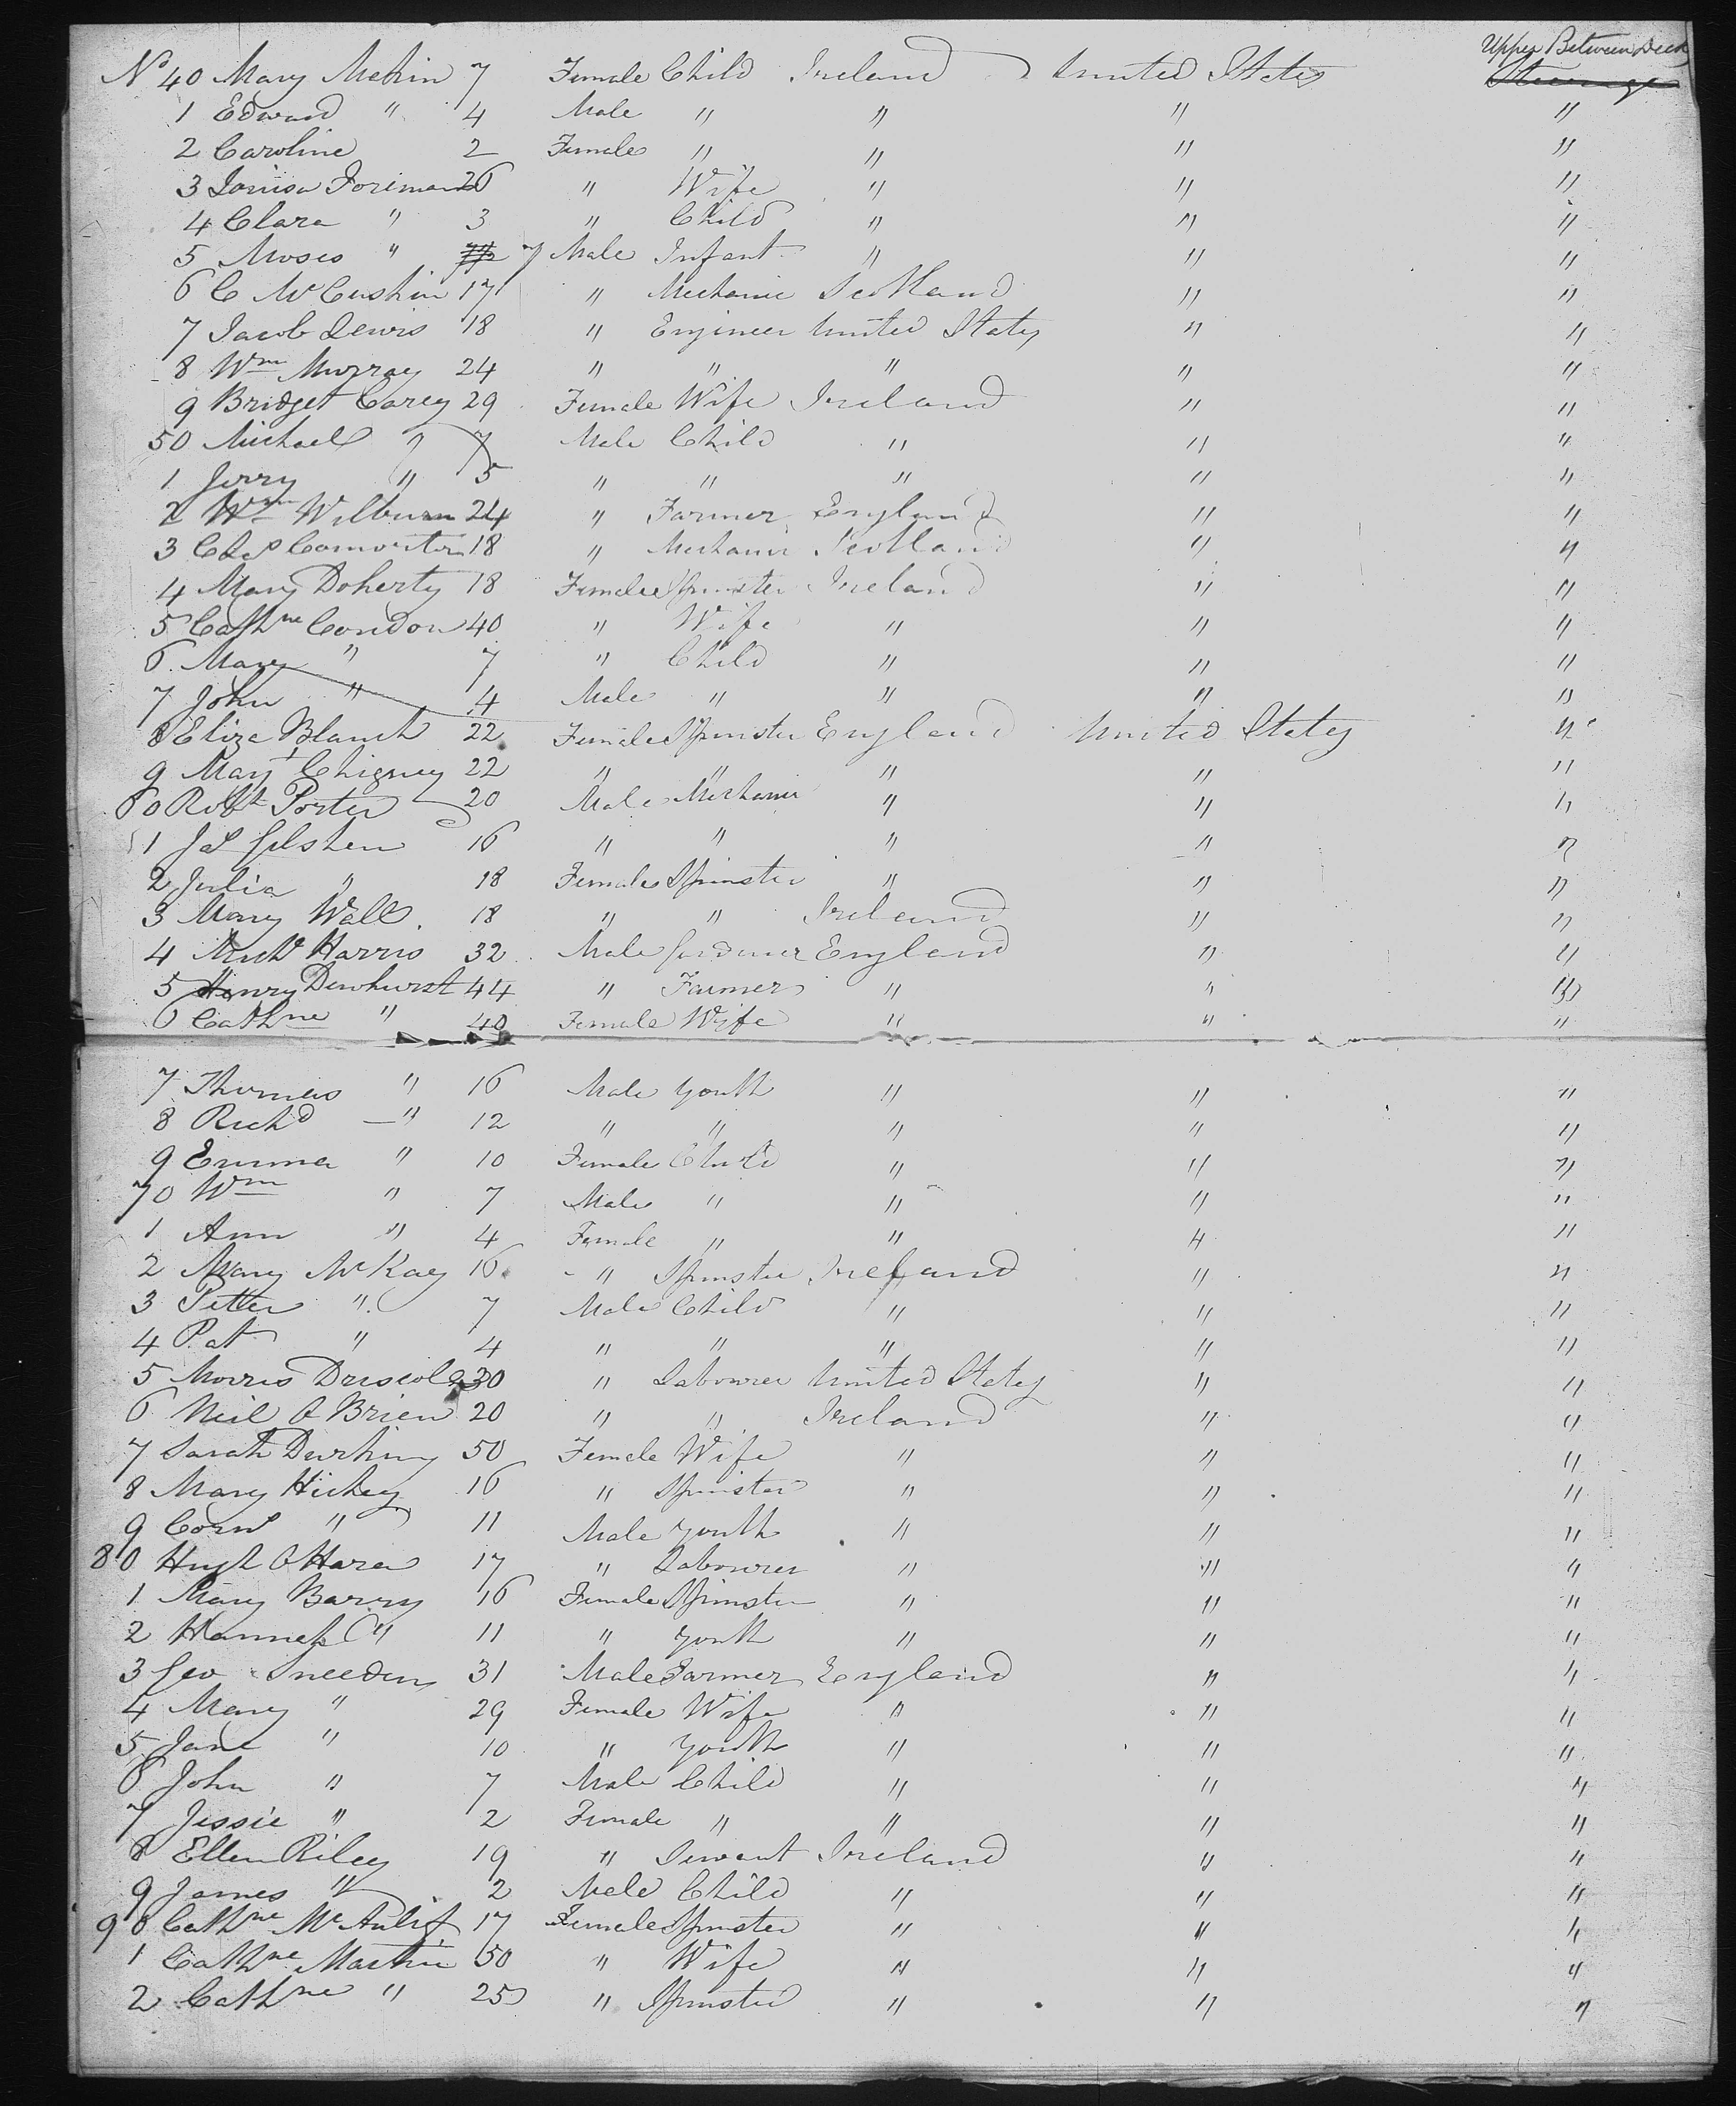 Upper Between Deck
No 40 Mary Mehin 7 Female Child Ireland United States Steerage
1 Edward " 4 Male " " " "
2 Caroline 2 Female " " " "
3 Louisa Foreman 26 " Wife " " "
4 Clara " 3 " Child " " "
5 Moses " 7 Male Infant " " "
6 C McCushin 17 " Mechanic Scotland " "
7 Jacob Lewis 18 " Engineer United States " "
8 Wm Murray 24 " " " " "
9 Bridget Carey 29 Female Wife Ireland " "
50 Michael " 7 Male Child " " "
1 Jerry " 5 " " " " "
2 Wm Wilburn 24 " Farmer England " "
3 18 " Mechanic Scotland " "
4 Mary Doherty 18 Female Spinster Ireland " "
5 Cathne Condon 40 " Wife " " "
6 Mary " 7 " Child " " "
7 John " 4 Male " " " "
8 Eliza Blanch 22 Female Spinster England United States "
9 Mary Chigney 22 " " " " "
60 Robt Porter 20 Male Mechanic " " "
1 16 " " " " "
2 Julia " 18 Female Spinster " " "
3 Mary Wall 18 " " Ireland " "
4 Harris 32 Male Gardener England " "
5 Henry Dewhurst 44 " Farmer " " "
6 Cathne " 40 Female Wife " " "
7 Thomas " 16 Male Youth " " "
8 Richd " 12 " " " " "
9 Emma " 10 Female Child " " "
70 Wm " 7 Male " " " "
1 Ann " 4 Female " " " "
2 Mary McKay 16 " Spinster Ireland " "
3 Petter " 7 Male Child " " "
4 Pat " 4 " " " " "
5 Morris Driscoll 30 " Labourer United States " "
6 Neil O Brien 20 " " Ireland " "
7 Sarah Durking 50 Female Wife " " "
8 Mary Hickey 16 " Spinster " " "
9 Cornl " 11 Male Youth " " "
80 Hugh O Hara 17 " Labourer " " "
1 Mary Barry 16 Female Spinster " " "
2 Hannah " 11 " Youth " " "
3 Geo Sneeden 31 Male Farmer England " "
4 Mary " 29 Female Wife " " "
5 Jane " 10 " Youth " " "
6 John " 7 Male Child " " "
7 Jessie " 2 Female " " " "
8 Ellen Riley 19 " Servant Ireland " "
9 James " 2 Male Child " " "
90 Cathne McAulif 17 Female Spinster " " "
1 Cathne Martin 50 " Wife " " "
2 Cathne " 25 " Spinster " " "